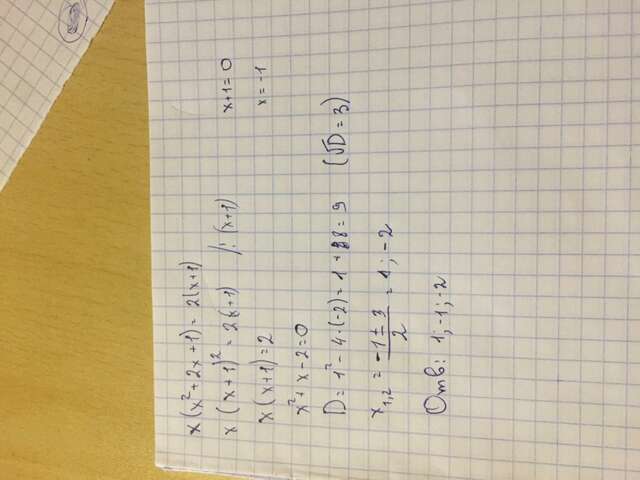 x(x²+2x+1)=2(x+1)
x(x+1)²=2(x+1) /:(x+1) x+1=0
x(x+1)=2 x=-1
x²+x-2=0
D=1²-4·(-2)=1+8=9 (√D=3)
x₁,₂=(-1±3)/2=1;-2
Отв: 1;-1;-2